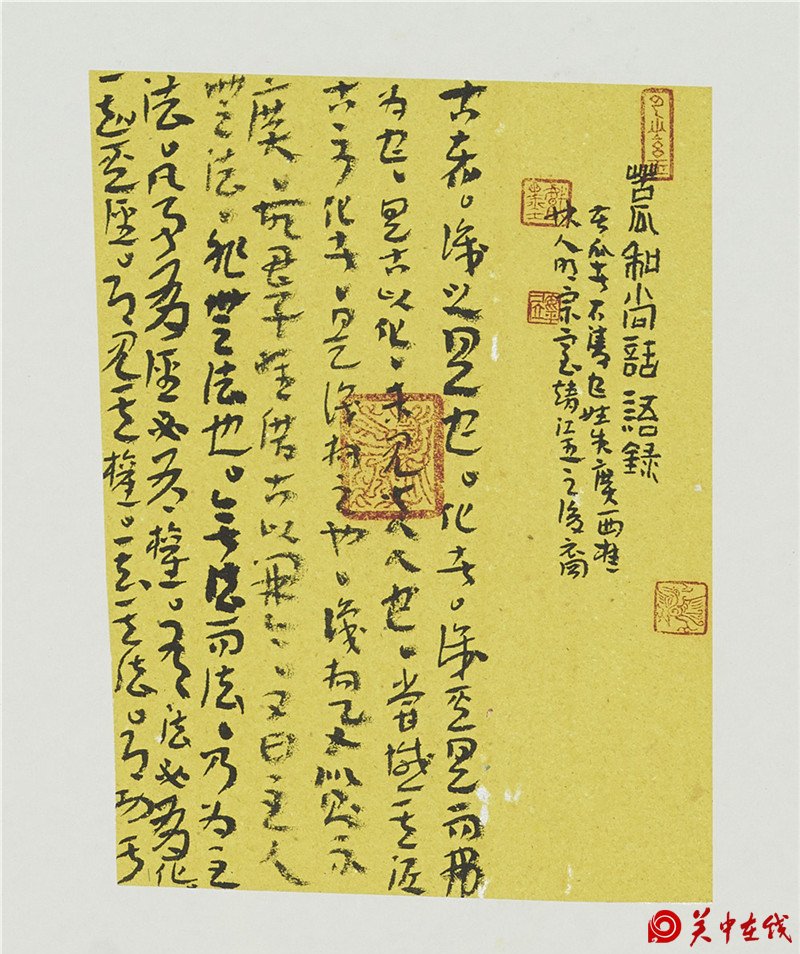 苦瓜和尚話語録
苦瓜者石濤也姓朱廣西桂
林人明宗室靖江王之後裔
古者。識之具也。化者。識其具而弗
為也。具古以化。未見夫人也。嘗憾其泥
古不化者。是識拘之也。識拘于似則不
廣。故君子惟借古以開今。又曰至人
無法。非無法也。無法而法。乃為至
法。凡事有經必有權。有法必有化
一知其經。即變其權。一知其法。即功于
关中在线